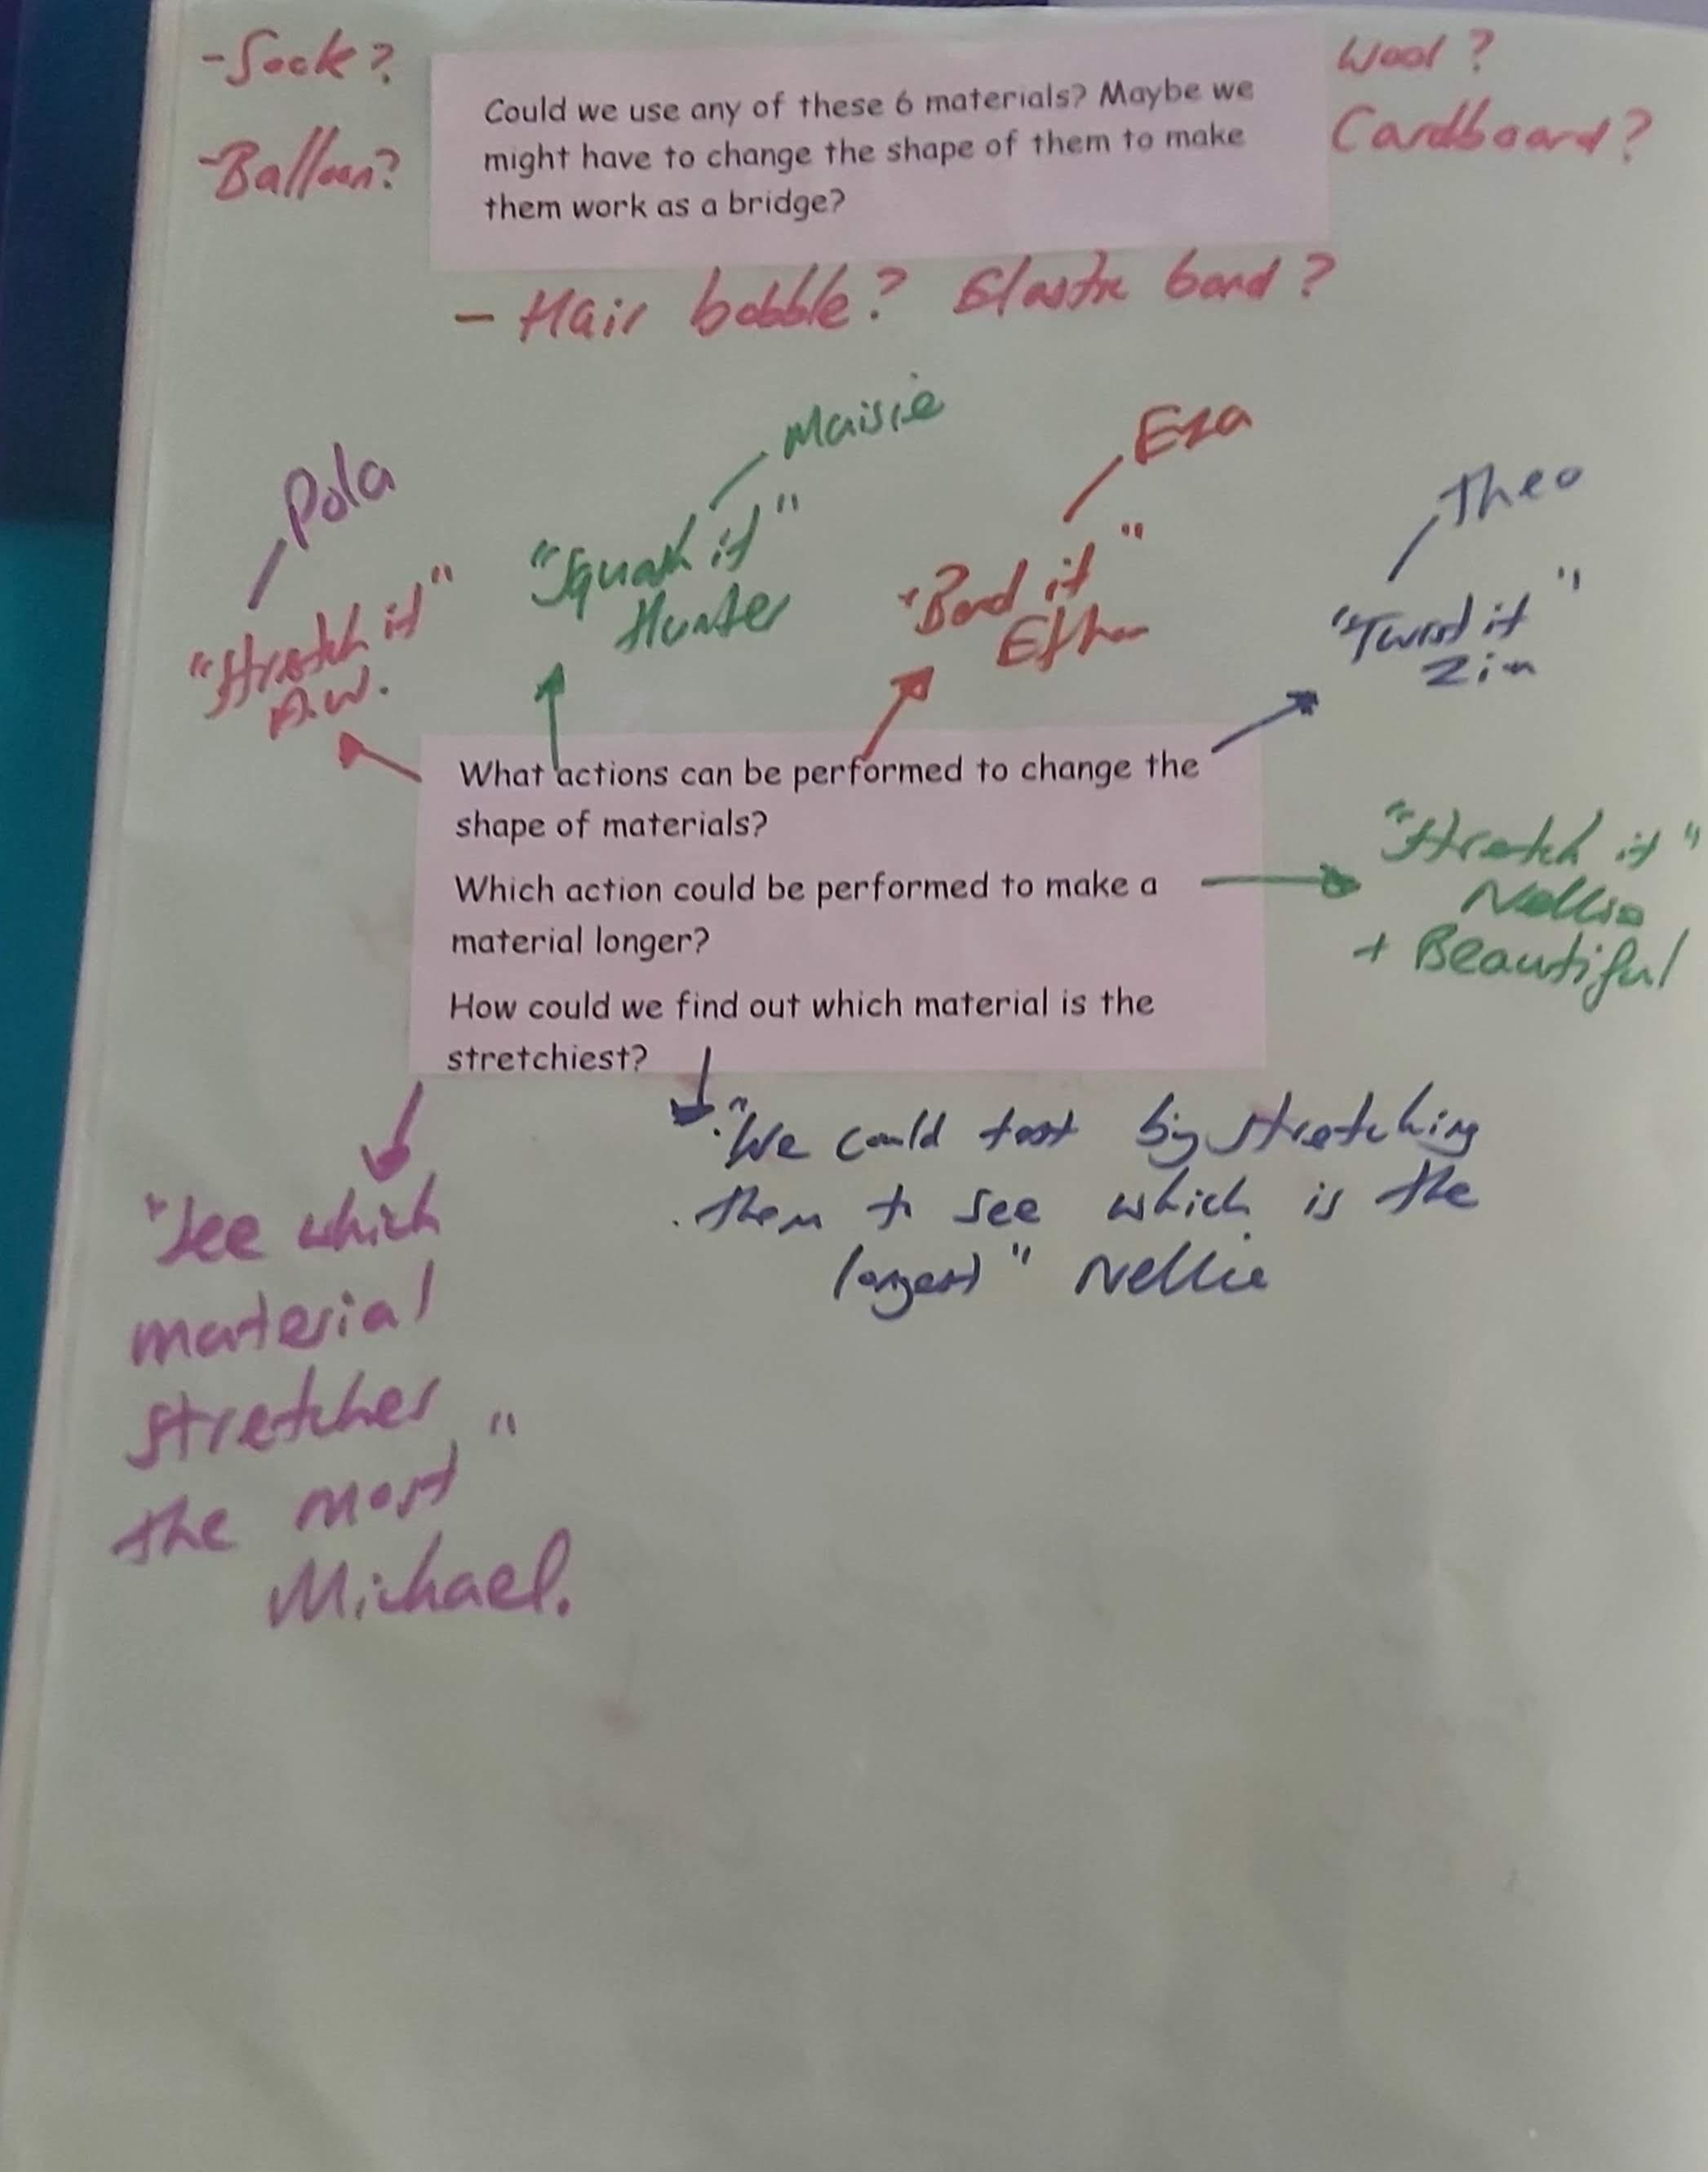 -Sock?
-Balloon?
Could we use any of these 6 materials? Maybe we
might have to change the shape of them to make
them work as a bridge?
Wool?
Cardboard?
- Hair bobble? Elastic band?
Pola
"Stretch it"
A.W.
Maisie
"Squash it"
Hunter
Eza
"Bend it"
Ethan
Theo
"Twist it"
Zim
What actions can be performed to change the
shape of materials?
Which action could be performed to make a
material longer?
How could we find out which material is the
stretchiest?
"Stretch it"
Nellie
+ Beautiful
"We could test by stretching
them to see which is the
longest" Nellie
"See which
material
stretches
the most"
Michael.